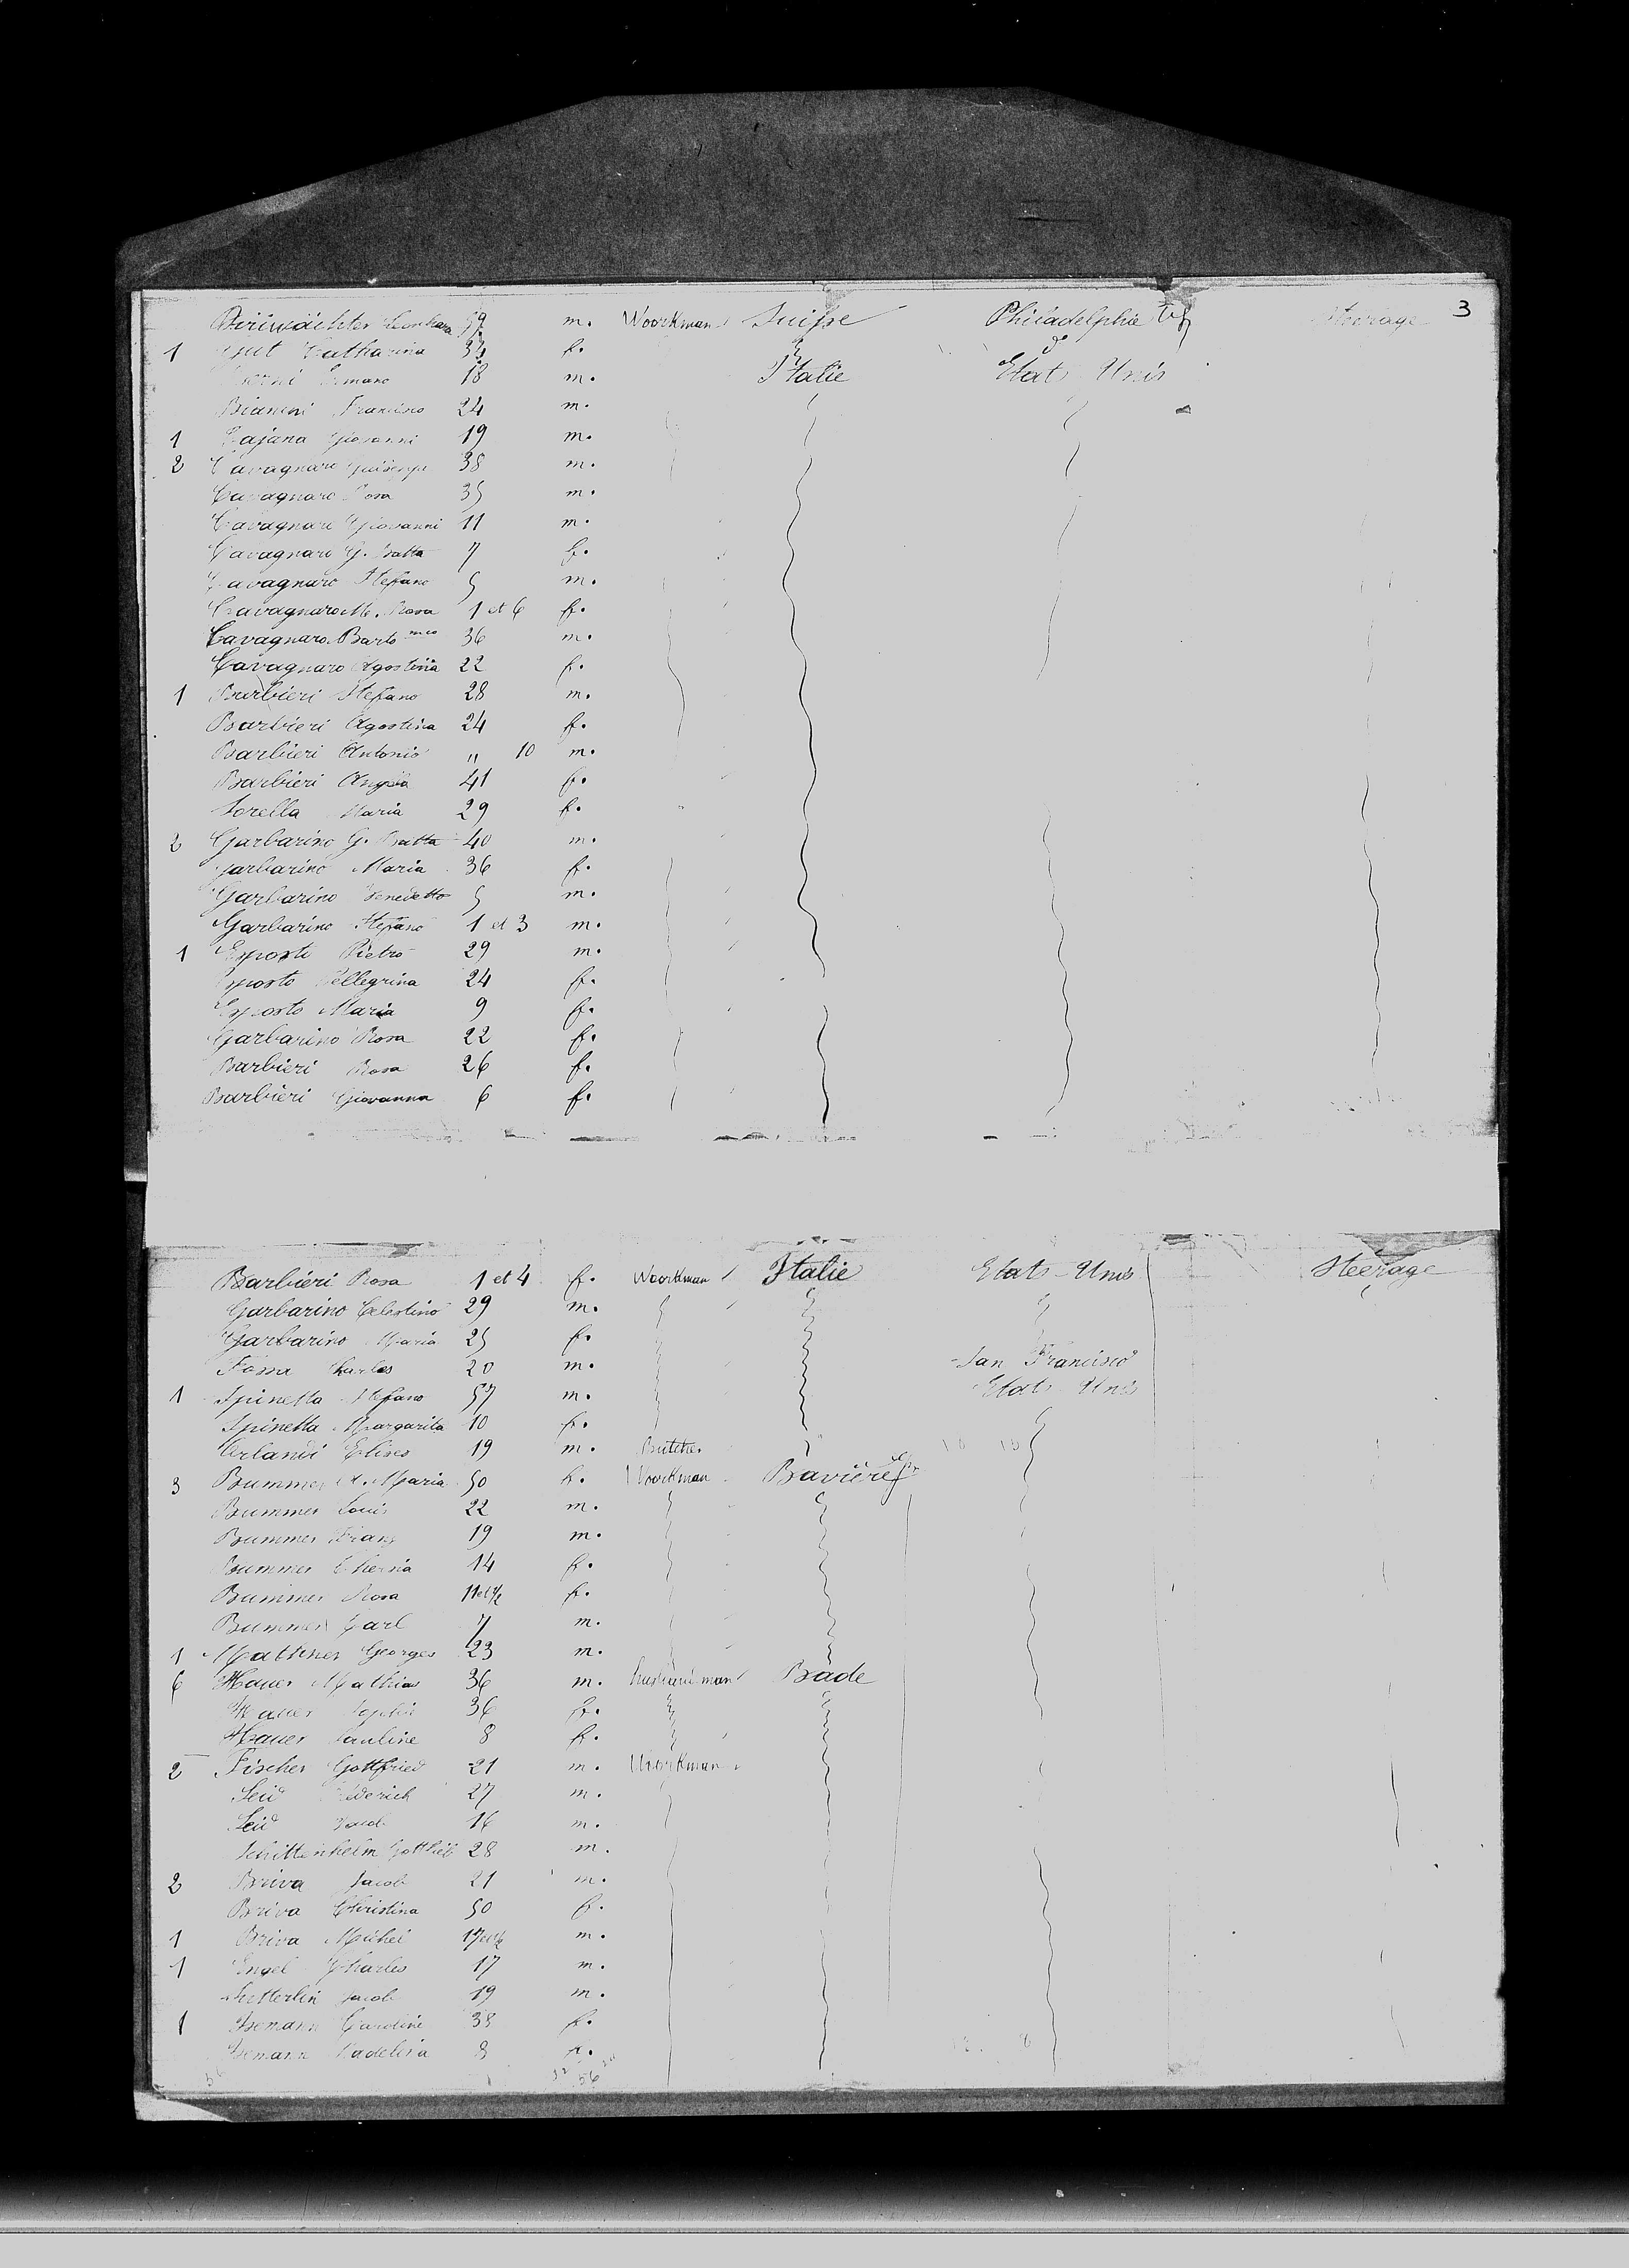 3
Leonhard 59 m. Woorkman Suisse Philadelphie Steerage
1 Gut Catharina 33 f.
18 m. Italie Etats Unis
Bianchi Francisco 24 m.
1 Cajana Giovanni 19 m.
2 Cavagnaro Guiseppe 38 m.
Cavagnaro Rosa 35 m.
Cavagnaro Giovanni 11 m.
Cavagnaro G. Batta 7 f.
Cavagnaro Stefano 5 m.
Cavagnaro M. Rosa 1 et 6 f.
Cavagnaro Barto meo 36 m.
Cavagnaro Agostina 22 f.
1 Barbieri Stefano 28 m.
Barbieri Agostina 24 f.
Barbieri Antonio " 10 m.
Barbieri Angela 41 f.
Sorella Maria 29 f.
2 Garbarino G. Batta 40 m.
Garbarino Maria 36 f.
Garbarino Benedetto 5 m.
Garbarino Stefano 1 et 3 m.
1 Esposto Pietro 29 m.
Esposto Pellegrina 24 f.
Esposto Maria 9 f.
Garbarino Rosa 22 f.
Barbieri Rosa 26 f.
Barbieri Giovanna 6 f.
Barbieri Rosa 1 et 4 f. Woorkman Italie Etats-Unis Steerage
Garbarino Celestino 29 m.
Garbarino Maria 25 f.
Fossa Charles 20 m. San Francisco
1 Spinetta Stefano 57 m. Etats Unis
Spinetta Margarita 10 f.
Orlandi Elises 19 m. Butcher
3 Bummer M. Maria 50 f. Woorkman Bavière
Bummer Louis 22 m.
Bummer Franz 19 m.
Bummer 14 f.
Bummer Rosa 11 et 1/2 f.
Bummer Carl 7 m.
1 Mathner Georges 23 m.
6 Hauer Mathias 36 m. husband man Bade
Hauer Sophie 36 f.
Hauer Pauline 8 f.
2 Fischer Gottfried 21 m. Woorkman
Seid Frederich 27 m.
Seid Jacob 16 m.
Schittenhelm Gottlieb 28 m.
2 Briva Jacob 21 m.
Briva Christina 50 f.
1 Briva Michel m.
1 Engel Charles 17 m.
Sutterlin Jacob 19 m.
1 Isemann Caroline 38 f.
Isemann Madelina 8 f.
56